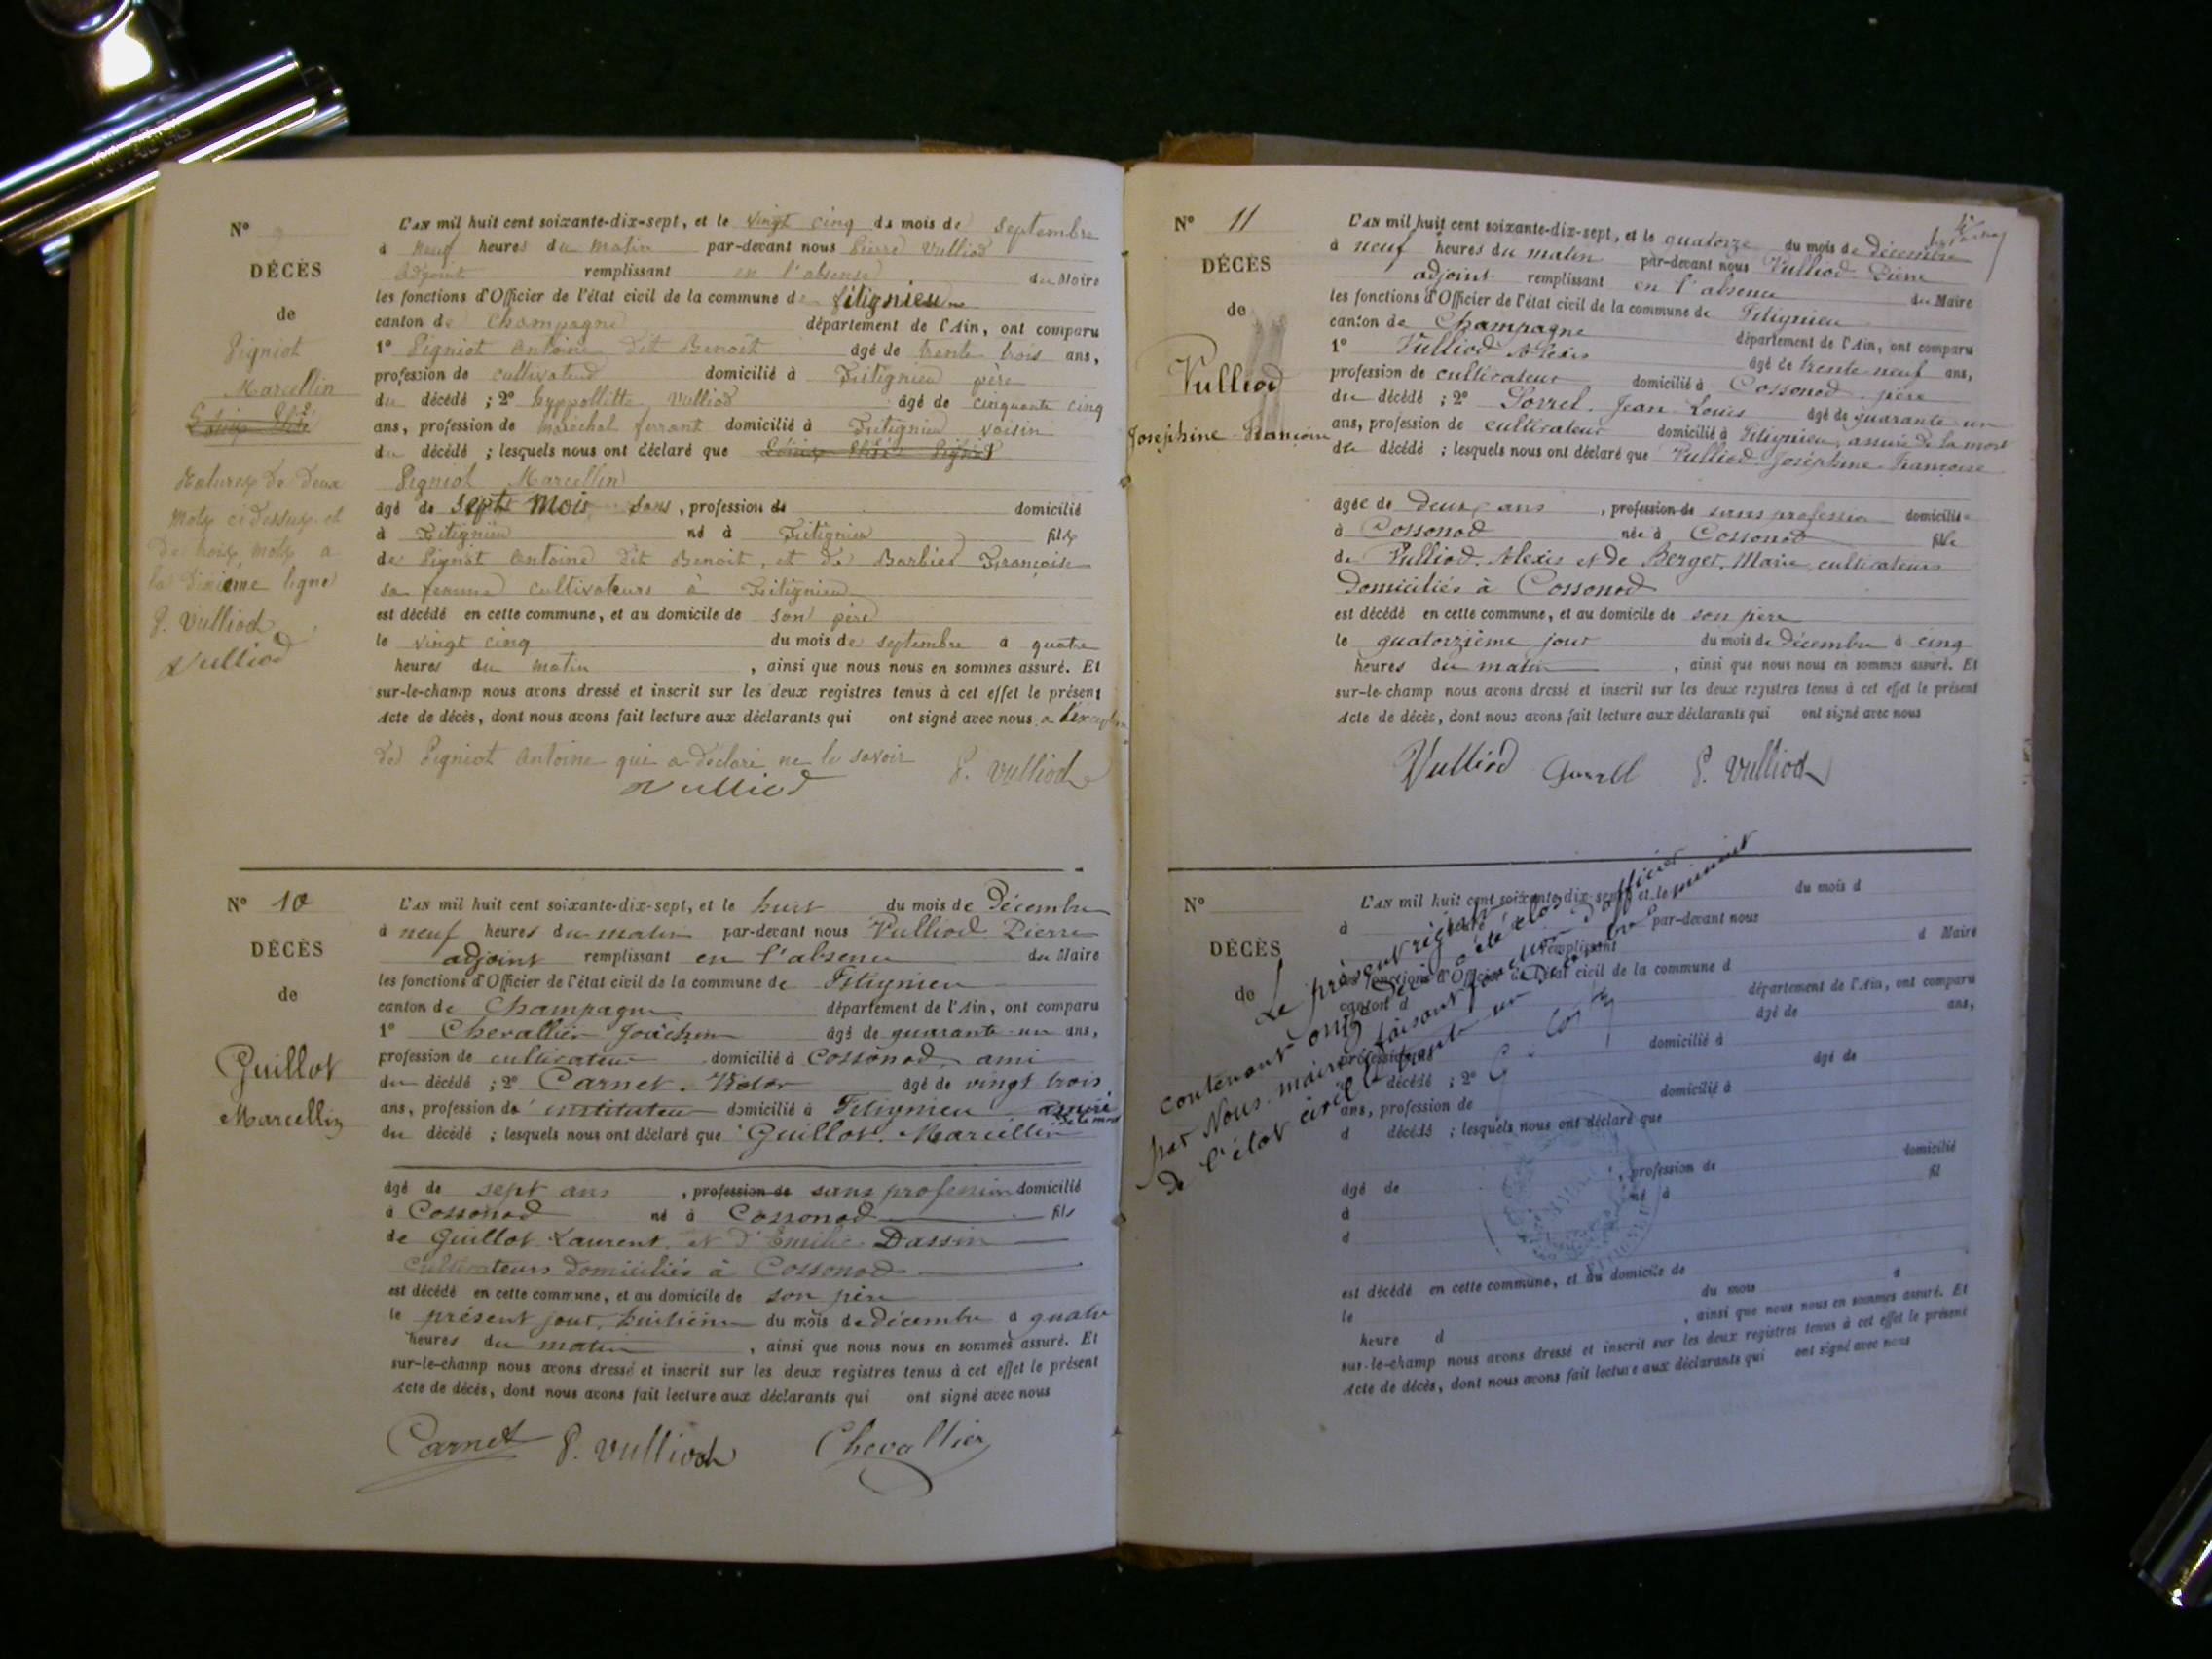 N° 9
DÉCÈS
de
Pigniot
Marcellin
Ratures de deux
mots ci dessus et
de trois mots a
la dixième ligne
P. Vulliod
Vulliod
L'AN mil huit cent soixante-dix-sept, et le vingt cinq du mois de septembre
à neuf heures du matin par-devant nous Pierre Vulliod
adjoint remplissant en l'absence du Maire
les fonctions d'Officier de l'état civil de la commune de fitignieu
canton de Champagne département de l'Ain, ont comparu
1° Pigniot Antoine dit Benoit âgé de trente trois ans,
profession de cultivateur domicilié à Fitignieu père
du décédé ; 2° hyppollitte Vulliod âgé de cinquante cinq
ans, profession de Maréchal ferrant domicilié à Fitignieu voisin
du décédé ; lesquels nous ont déclaré que
Pigniot Marcellin
âgé de sept mois sans, profession de domicilié
à Fitignieu né à Fitignieu fils
de Pigniot Antoine dit Benoit, et de Barbier Françoise
sa femme cultivateurs à Fitignieu
est décédé en cette commune, et au domicile de son père
le vingt cinq du mois de septembre à quatre
heures du matin , ainsi que nous nous en sommes assuré. Et
sur-le-champ nous avons dressé et inscrit sur les deux registres tenus à cet effet le présent
Acte de décès, dont nous avons fait lecture aux déclarants qui ont signé avec nous a l'exception
de Pigniot Antoine qui a déclaré ne le savoir
Vulliod P. Vulliod
N° 10
DÉCÈS
de
Guillot
Marcellin
L'AN mil huit cent soixante-dix-sept, et le huit du mois de Décembre
à neuf heures du matin par-devant nous Vulliod Pierre
adjoint remplissant en l'absence du Maire
les fonctions d'Officier de l'état civil de la commune de Fitignieu
canton de Champagne département de l'Ain, ont comparu
1° Chevallier Joachim âgé de quarante un ans,
profession de cultivateur domicilié à Cossonod, ami
du décédé ; 2° Carnet. Victor âgé de vingt trois
ans, profession de instituteur domicilié à Fitignieu assuré de la mort
du décédé ; lesquels nous ont déclaré que Guillot. Marcellin
âgé de sept ans , profession de sans profession domicilié
à Cossonod né à Cossonod fils
de Guillot Laurent et d'Emilie Dassin
cultivateurs domiciliés à Cossonod
est décédé en cette commune, et au domicile de son père
le présent jour, huitième du mois de décembre à quatre
heures du matin , ainsi que nous nous en sommes assuré. Et
sur-le-champ nous avons dressé et inscrit sur les deux registres tenus à cet effet le présent
Acte de décès, dont nous avons fait lecture aux déclarants qui ont signé avec nous
Carnet P. Vulliod Chevallier
N° 11
DÉCÈS
de
Vulliod
Joséphine Françoise
L'AN mil huit cent soixante-dix-sept, et le quatorze du mois de décembre
à neuf heures du matin par-devant nous Vulliod Pierre
adjoint remplissant en l'absence du Maire
les fonctions d'Officier de l'état civil de la commune de Fitignieu
canton de Champagne département de l'Ain, ont comparu
1° Vulliod Alexis âgé de trente neuf ans,
profession de cultivateur domicilié à Cossonod père
du décédé ; 2° Sorrel. Jean Louis âgé de quarante un
ans, profession de cultivateur domicilié à Fitignieu, assuré de la mort
du décédé ; lesquels nous ont déclaré que Vulliod Joséphine Françoise
âgée de deux ans , profession de sans profession domicilié
à Cossonod née à Cossonod fille
de Vulliod. Alexis et de Berger. Marie, cultivateurs
domiciliés à Cossonod
est décédé en cette commune, et au domicile de son père
le quatorzième jour du mois de décembre à cinq
heures du matin , ainsi que nous nous en sommes assuré. Et
sur-le-champ nous avons dressé et inscrit sur les deux registres tenus à cet effet le présent
Acte de décès, dont nous avons fait lecture aux déclarants qui ont signé avec nous
Vulliod P. Vulliod
N°
DÉCÈS
de
L'AN mil huit cent soixante-dix-sept, et le du mois d
à heure par-devant nous
remplissant d Maire
les fonctions d'Officier de l'état civil de la commune d
canton d département de l'Ain, ont comparu
âgé de ans,
profession de domicilié à
décédé ; 2° âgé de
ans, profession de domicilié à
d décédé ; lesquels nous ont déclaré que
âgé de , profession de domicilié
à né à fil
d
est décédé en cette commune, et au domicile de
le du mois à
heure d , ainsi que nous nous en sommes assuré. Et
sur-le-champ nous avons dressé et inscrit sur les deux registres tenus à cet effet le présent
Acte de décès, dont nous avons fait lecture aux déclarants qui ont signé avec nous
Le présent registre
contenant onze a été clos
par Nous. maire faisant fonction d'officier
de l'état civil le trente un Décembre à minuit